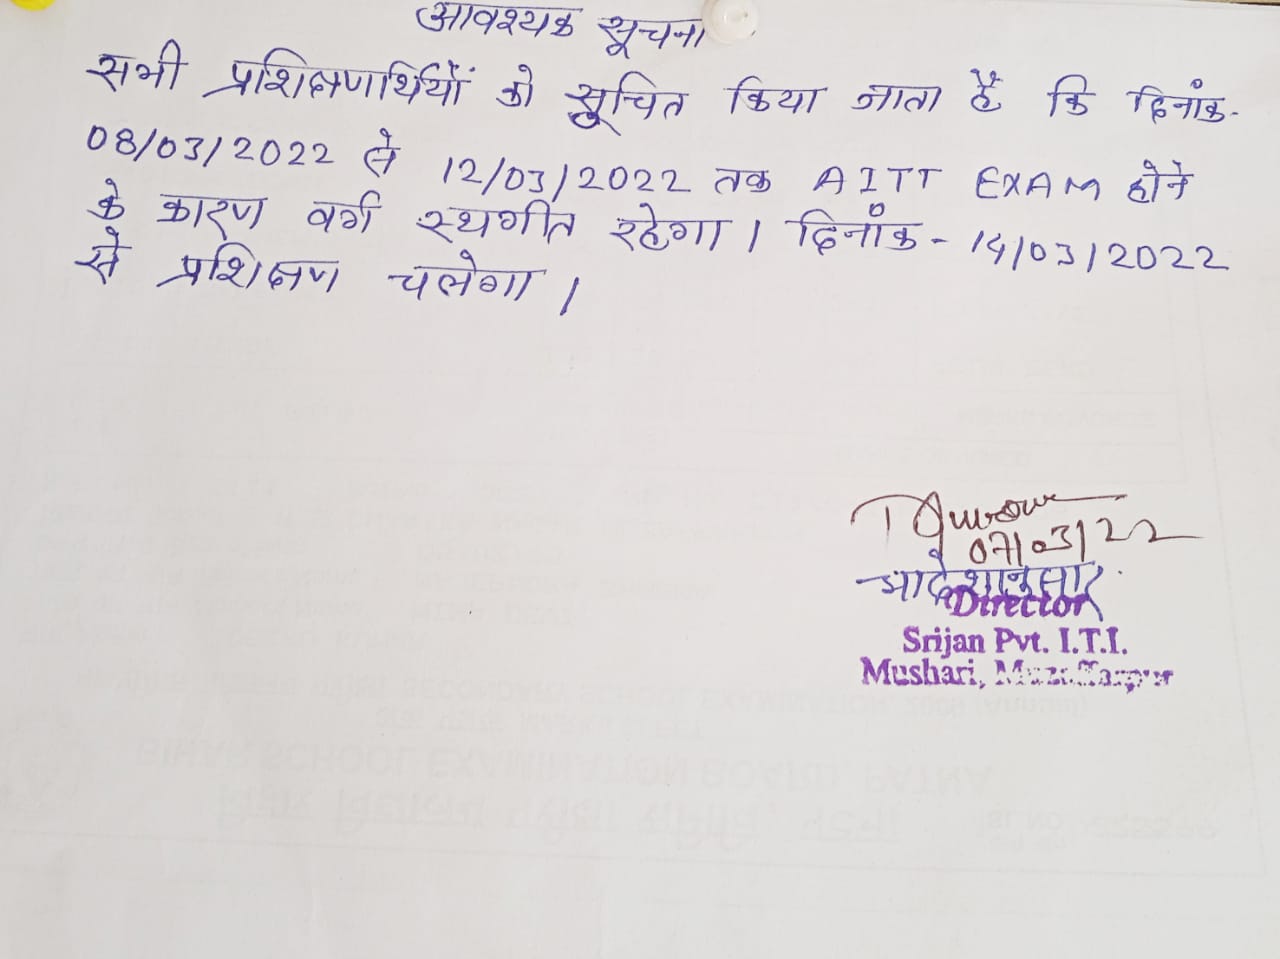 आवश्यक सूचना
सभी प्रशिक्षणार्थियों को सूचित किया जाता है कि दिनांक-
08/03/2022 से 12/03/2022 तक AITT EXAM होने
के कारण वर्ग स्थगीत रहेगा। दिनांक - 14/03/2022
से प्रशिक्षण चलेगा।
07/03/22
आदेशानुसार
Director
Srijan Pvt. I.T.I.
Mushari, Muzaffarpur